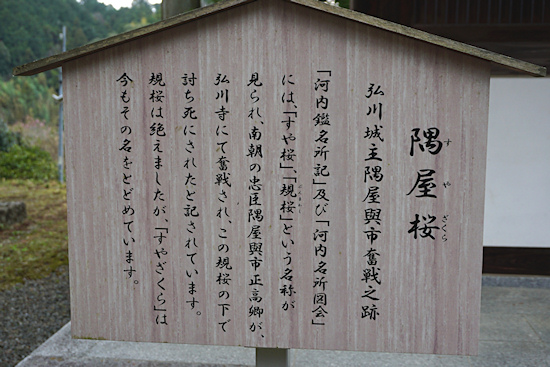 隅屋桜
すやざくら
弘川城主隅屋與市奮戦之跡
「河内鑑名所記」及び「河内名所図会」
には、「すや桜」、「規桜」という名称が
見られ、南朝の忠臣隅屋與市正高卿が、
弘川寺にて奮戦され、この規桜の下で
討ち死にされたと記されています。
規桜は絶えましたが、「すやざくら」は
今もその名をとどめています。